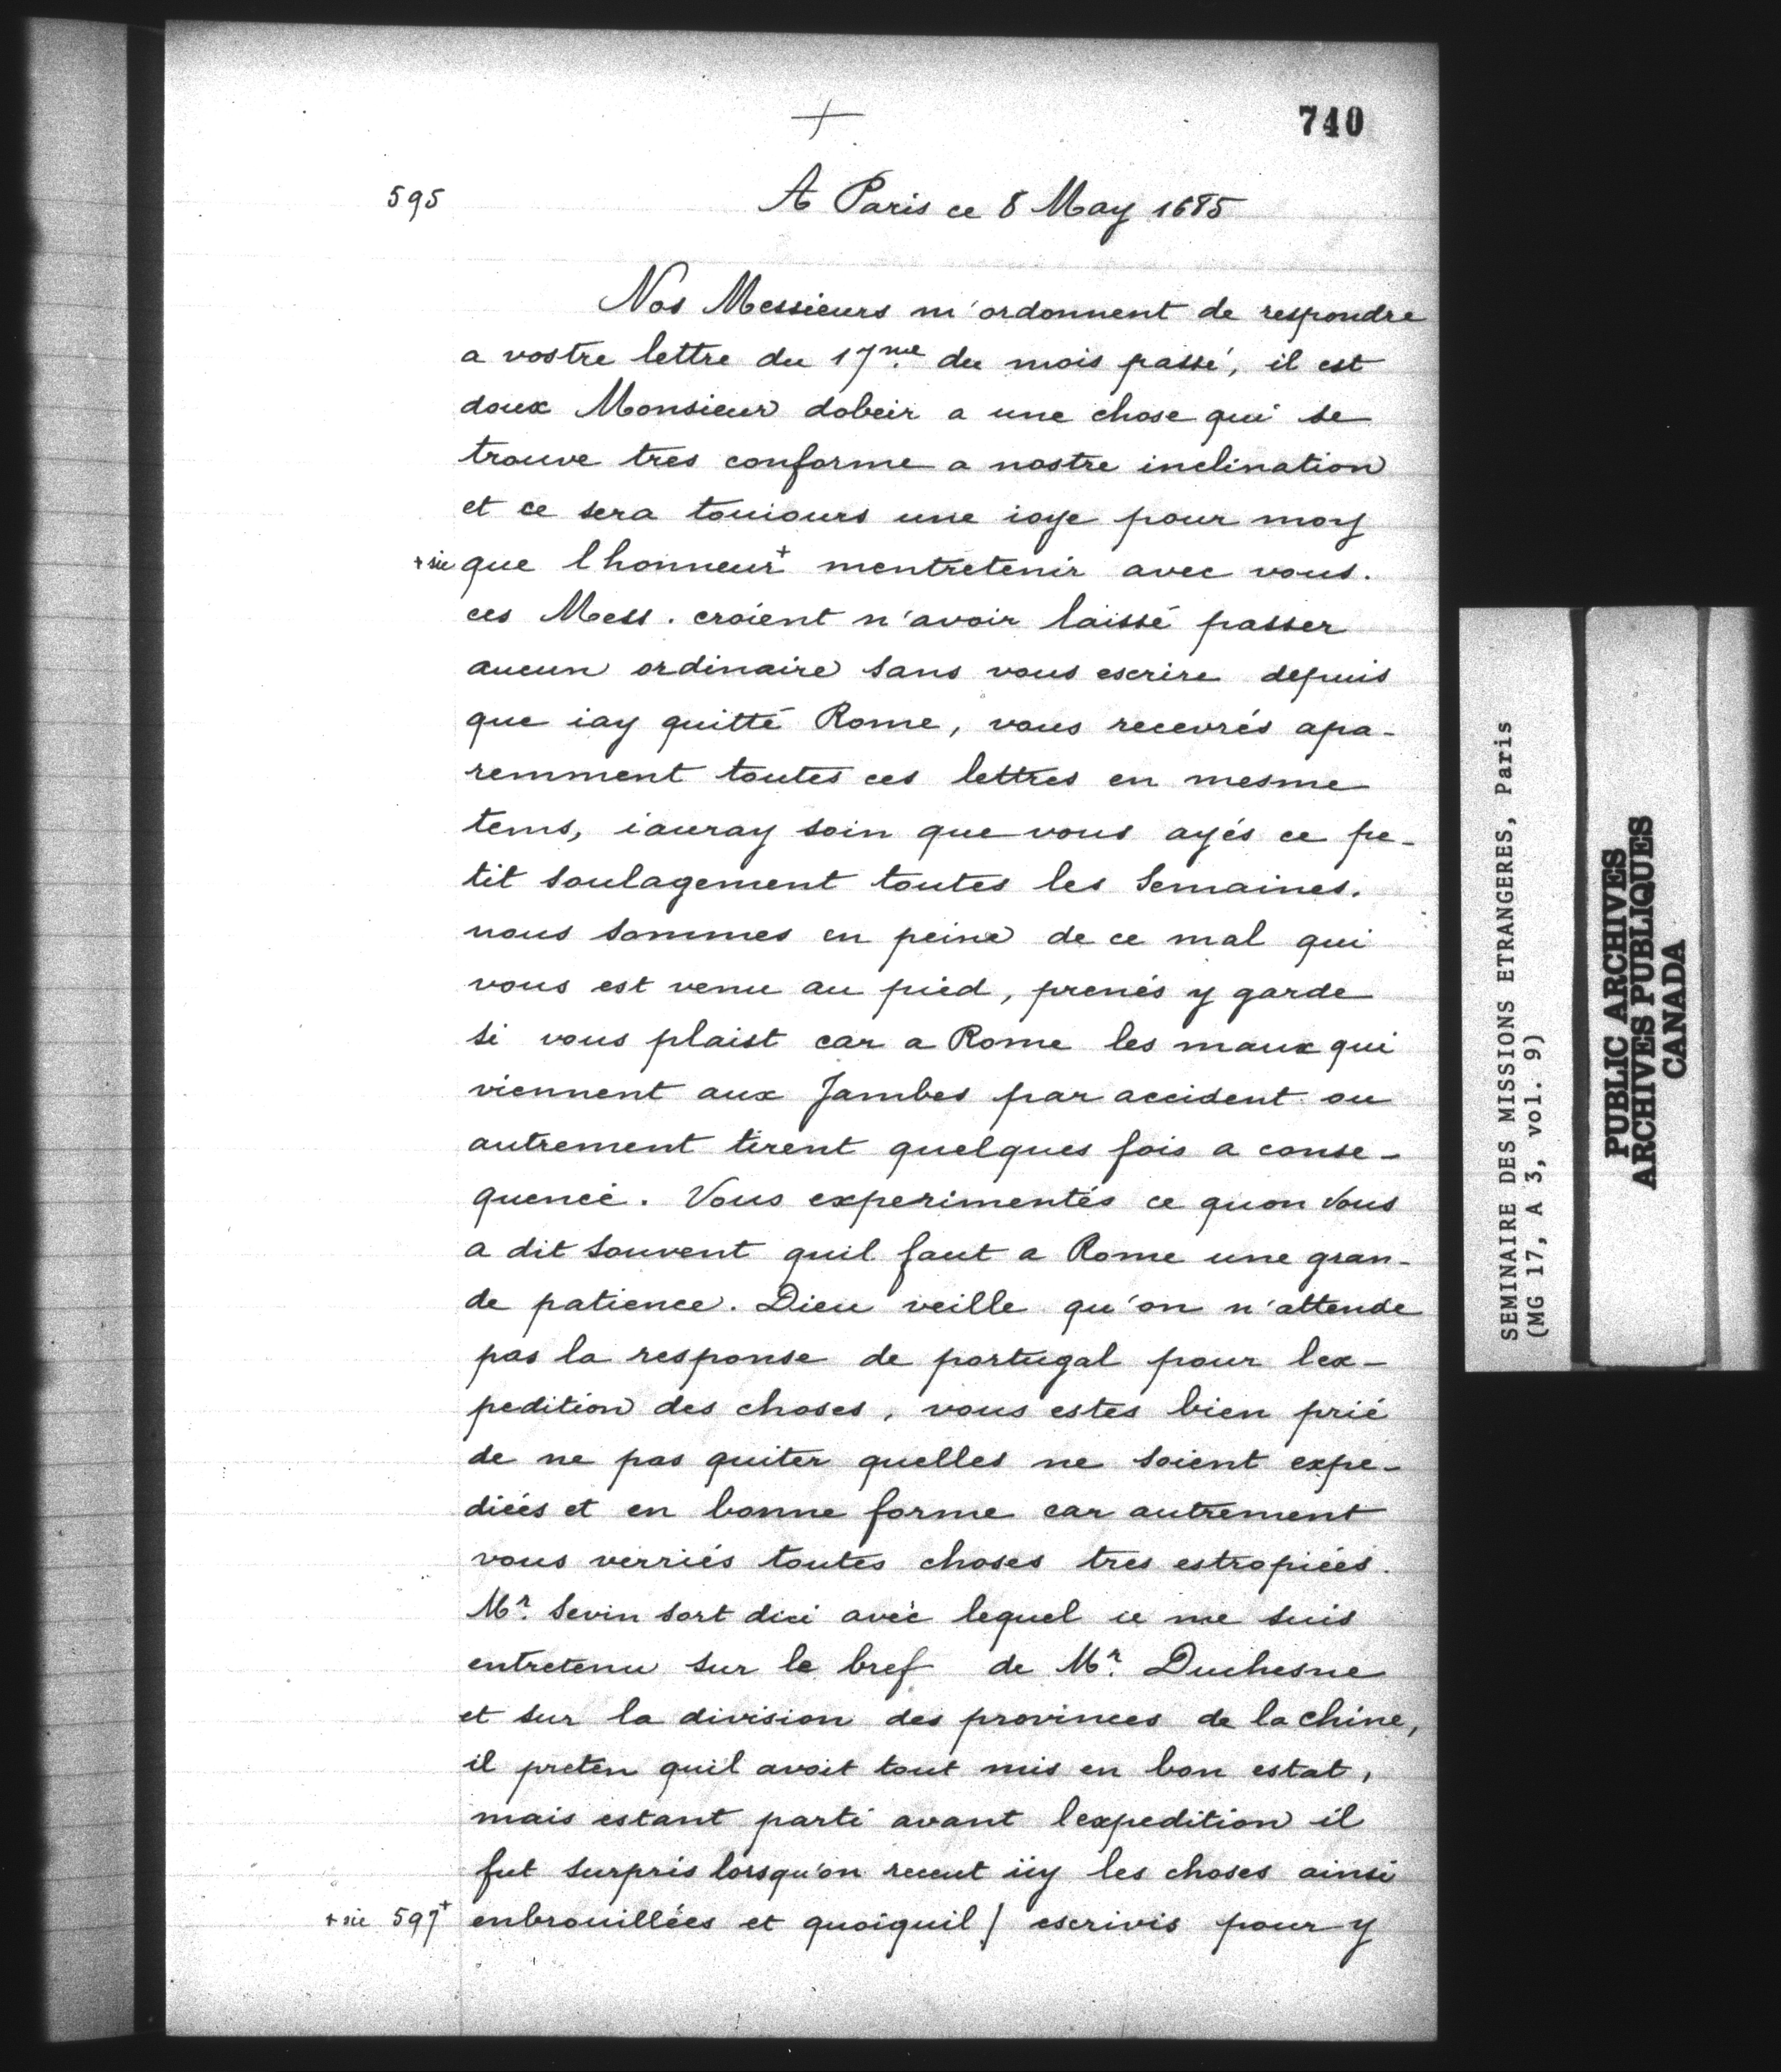 740
+
595
A Paris ce 8 May 1685
Nos Messieurs m'ordonnent de respondre
a vostre lettre du 17me. du mois passé, il est
doux Monsieur dobeir a une chose qui se
trouve tres conforme a nostre inclination
et ce sera touiours une ioye pour moy
+ sic que lhonneur+ mentretenir avec vous.
ces Mess. croient n'avoir laissé passer
aucun ordinaire sans vous escrire depuis
que iay quitté Rome, vous recevrés apa-
remment toutes ces lettres en mesme
tems, iauray soin que vous ayés ce pe-
tit soulagement toutes les Semaines.
nous sommes en peine de ce mal qui
vous est venu au pied, prenés y garde
si vous plaist car a Rome les maux qui
viennent aux Jambes par accident ou
autrement tirent quelques fois a conse-
quence. Vous experimentés ce quon Vous
a dit souvent quil faut a Rome une gran-
de patience. Dieu veille qu'on n'attende
pas la response de portugal pour lex-
pedition des choses, vous estes bien prié
de ne pas quiter quelles ne soient expe-
diées et en bonne forme car autrement
vous verriés toutes choses tres estropiées.
Mr. Sevin sort dici avec lequel ie me suis
entretenu sur le bref de Mr. Duchesne
et sur la division des provinces de la chine,
il preten quil avoit tout mis en bon estat,
mais estant parti avant lexpedition il
fut surpris lorsqu'on receut iiy les choses ainsi
+ sic 597+ enbrouillées et quoiquil / escrivis pour y
SEMINAIRE DES MISSIONS ETRANGERES, Paris
(MG 17, A 3, vol. 9)
PUBLIC ARCHIVES
ARCHIVES PUBLIQUES
CANADA